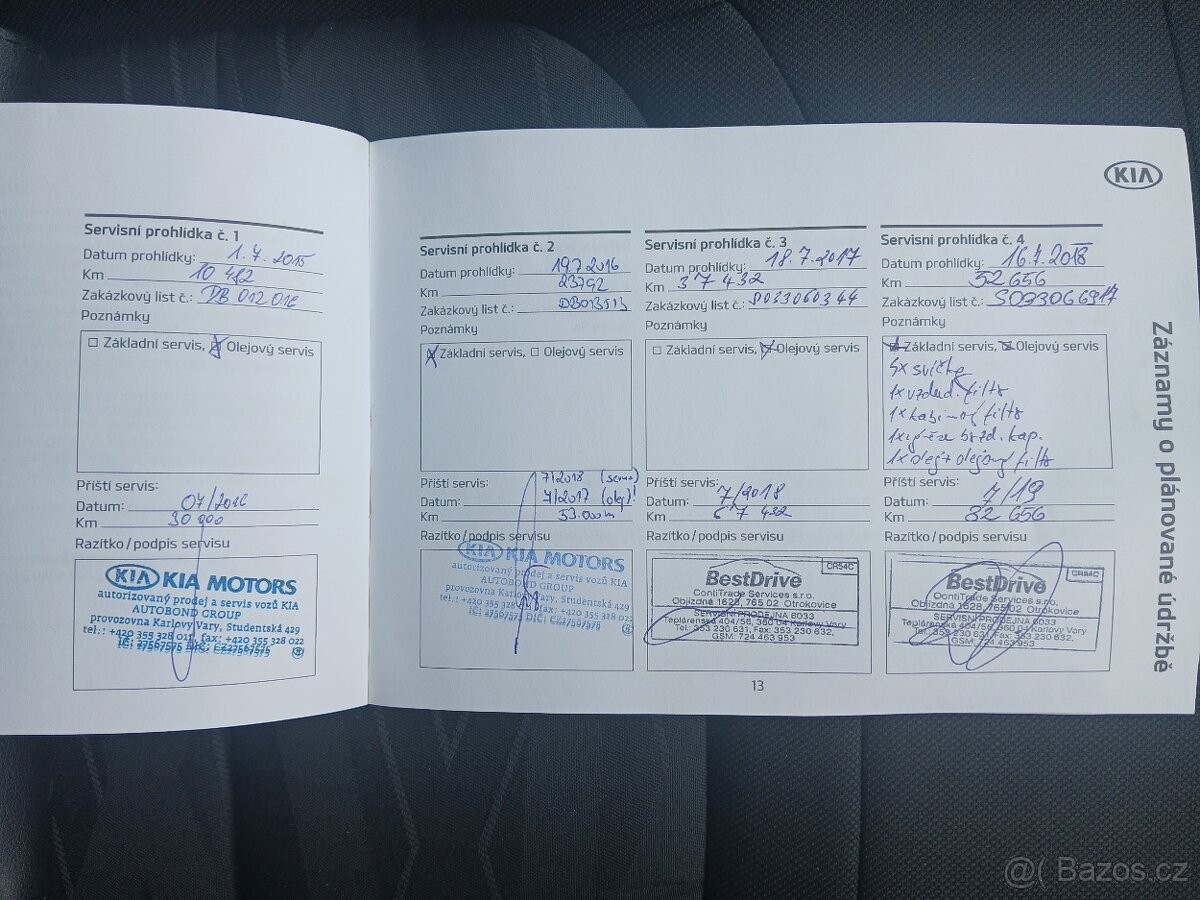 KIA
Servisní prohlídka č. 1
Datum prohlídky: 1. 7. 2015
Km 10 482
Zakázkový list č.: DB 012 012
Poznámky
Základní servis, Olejový servis
Příští servis:
Datum: 07/2016
Km 30 000
Razítko/podpis servisu
KIA KIA MOTORS
autorizovaný prodej a servis vozů KIA
AUTOBOND GROUP
provozovna Karlovy Vary, Studentská 429
tel.: +420 355 328 011, fax: +420 355 328 022
IČ: 27567575 DIČ: CZ27567575
Servisní prohlídka č. 2
Datum prohlídky: 19.7.2016
Km 23792
Zakázkový list č.:
Poznámky
Základní servis, Olejový servis
Příští servis: 7/2018
Datum: 7/2017 (olej)!
Km 53.000
Razítko/podpis servisu
KIA KIA MOTORS
autorizovaný prodej a servis vozů KIA
AUTOBOND GROUP
provozovna Karlovy Vary, Studentská 429
tel.: +420 355 328 fax: +420 355 328
IČ: 27567575 DIČ: CZ27567575
Servisní prohlídka č. 3
Datum prohlídky: 18.7.2017
Km 37 432
Zakázkový list č.: S033060344
Poznámky
Základní servis, Olejový servis
Příští servis:
Datum: 7/2018
Km 67 432
Razítko/podpis servisu
CR54C
BestDrive
ContiTrade Services s.r.o.
Objízdná 1628, 765 02 Otrokovice
SERVISNÍ PRODEJNA 6033
Teplárenská 404/56, 360 04 Karlovy Vary
Tel.: 353 230 631, Fax: 353 230 632,
GSM: 724 463 953
Servisní prohlídka č. 4
Datum prohlídky: 16.7.2018
Km 52 656
Zakázkový list č.: S093066917
Poznámky
Základní servis, Olejový servis
4x svíčka
1x vzduch. filtr
1x kabinový filtr
1x brzd. kap.
1x olej + olejový filtr
Příští servis:
Datum: 7/19
Km 82 656
Razítko/podpis servisu
CR94C
BestDrive
ContiTrade Services s.r.o.
Objízdná 1628, 765 02 Otrokovice
SERVISNÍ PRODEJNA 6033
Teplárenská 404/56, 360 04 Karlovy Vary
Tel.: 353 230 631, Fax: 353 230 632,
GSM: 724 463 953
13
Záznamy o plánované údržbě
@( Bazos.cz